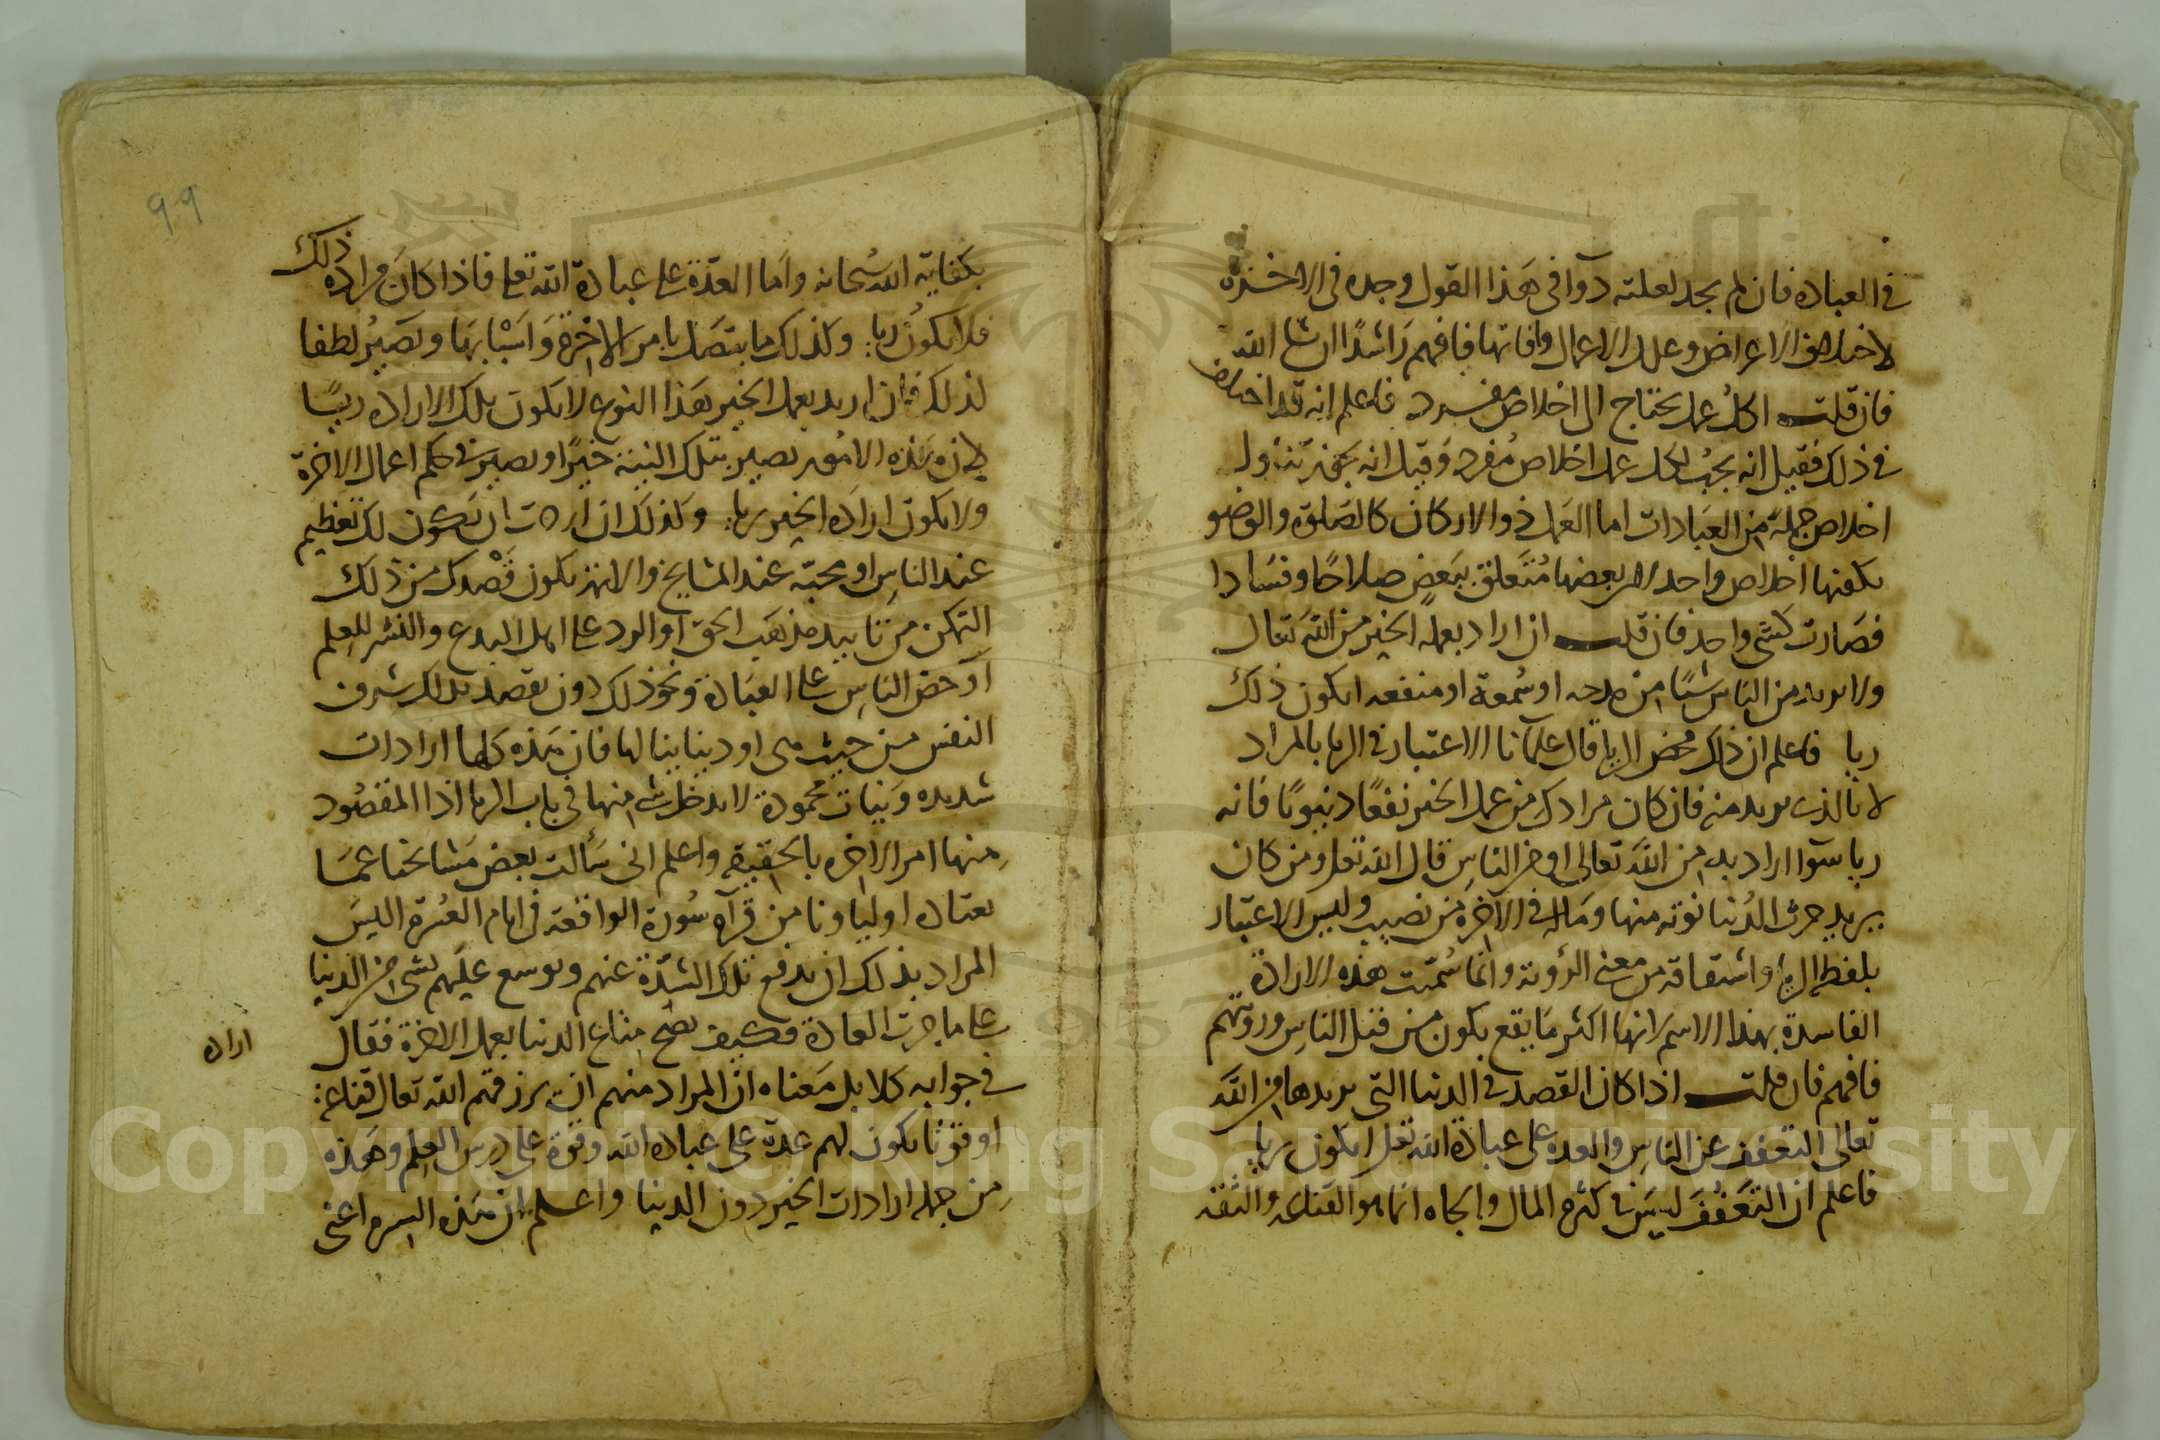 في العباده فان لم يجد لعلته دوآ في هذا القول وجده في الاخذه
لاختلاف الاعراض وعلل الاعمال وافاتها فافهم راشدًا ان شا الله
فان قلت اكل عمل يحتاج الى اخلاص مفرد فاعلم انه قد اختلف
في ذلك فقيل انه يجب لكل عمل اخلاص مفرد وقيل انه يجوز تناول
اخلاص جملة من العبادات اما العمل ذو الاركان كالصلوة والوضو
يكفيها اخلاص واحد لان بعضها متعلق ببعض صلاحًا وفسادا
فصارت كشي واحد فان قلت ان اراد بعمله الخير من الله تعالى
ولا يريد من الناس شيًا من مدحه او سُمعة او منفعه ايكون ذلك
ريا فاعلم ان ذلك محض الريا قال علمآنا الاعتبار في الريا بالمراد
لا بالذي يريد منه فان كان مرادك من عمل الخير نفعًا دنيويًا فانه
ريا سوآ اراد به من الله تعالى او من الناس قال الله تعلى ومن كان
يريد حرث الدنيا نوته منها وما له في الآخرة من نصيب وليس الاعتبار
بلفظ الريا واشتقاقه من معنى الرؤية وانما سُمّيت هذه الارادة
الفاسدة بهذا الاسم لانها اكثر ما يقع يكون من قبل الناس ورويتهم
فافهم فان قلت اذا كان القصد في الدنيا التي يريدها من الله
تعالى التعفف عن الناس والعده على عبادة الله تعلى ايكون ريا
فاعلم ان التعفف ليس في كثره المال والجاه انما هو القناعه والثقه
٩٩
بكفاية الله سبحانه واما العدّة على عبادة الله تعلى فاذا كان مراده ذلك
فلا يكون ريا وكذلك ما يتصل بامر الاخرة واسبابها وتصير لطفا
لذلك فان اريد بعمل الخير هذا النوع لا يكون تلك الاراده ريبًا
لان هذه الامور تصير بتلك النية خيرًا وتصير في حكم اعمال الاخرة
ولا يكون ارادة الخير ريا وكذلك ان اردت ان تكون لك تعظيم
عند الناس او محبّه عند المشايخ والائمه يكون قصدك من ذلك
التمكن من تاييد مذهب الحق او الرد على اهل البدع والنشر للعلم
او حض الناس على العبادة ونحو ذلك دون تقصد بذلك شرف
النفس من حيث هي او دينا ينالها فان هذه كلها ارادات
شديده ونيات محمودة لا يدخل شي منها في باب الريا اذا المقصود
منها امر الاخره بالحقيقه واعلم اني سألت بعض مشايخنا عما
يعتاده اولياونا من قرآه سُورة الواقعة في ايام العُسرة اليس
المراد بذلك ان يدفع تلك الشدّة عنهم ويوسع عليهم بشي من الدنيا
على ما جرت العادة فكيف يصح متاع الدنيا بعمل الاخرة فقال
اراده
في جوابه كلا بل معناه ان المراد منهم ان يرزقهم الله تعالى قناعه
او قوتًا يكون لهم عدة على عباده الله وقوة على درس العلم وهذه
من جمله ارادات الخير دون الدنيا واعلم ان هذه السيره اعني
Copyright © King Saud University